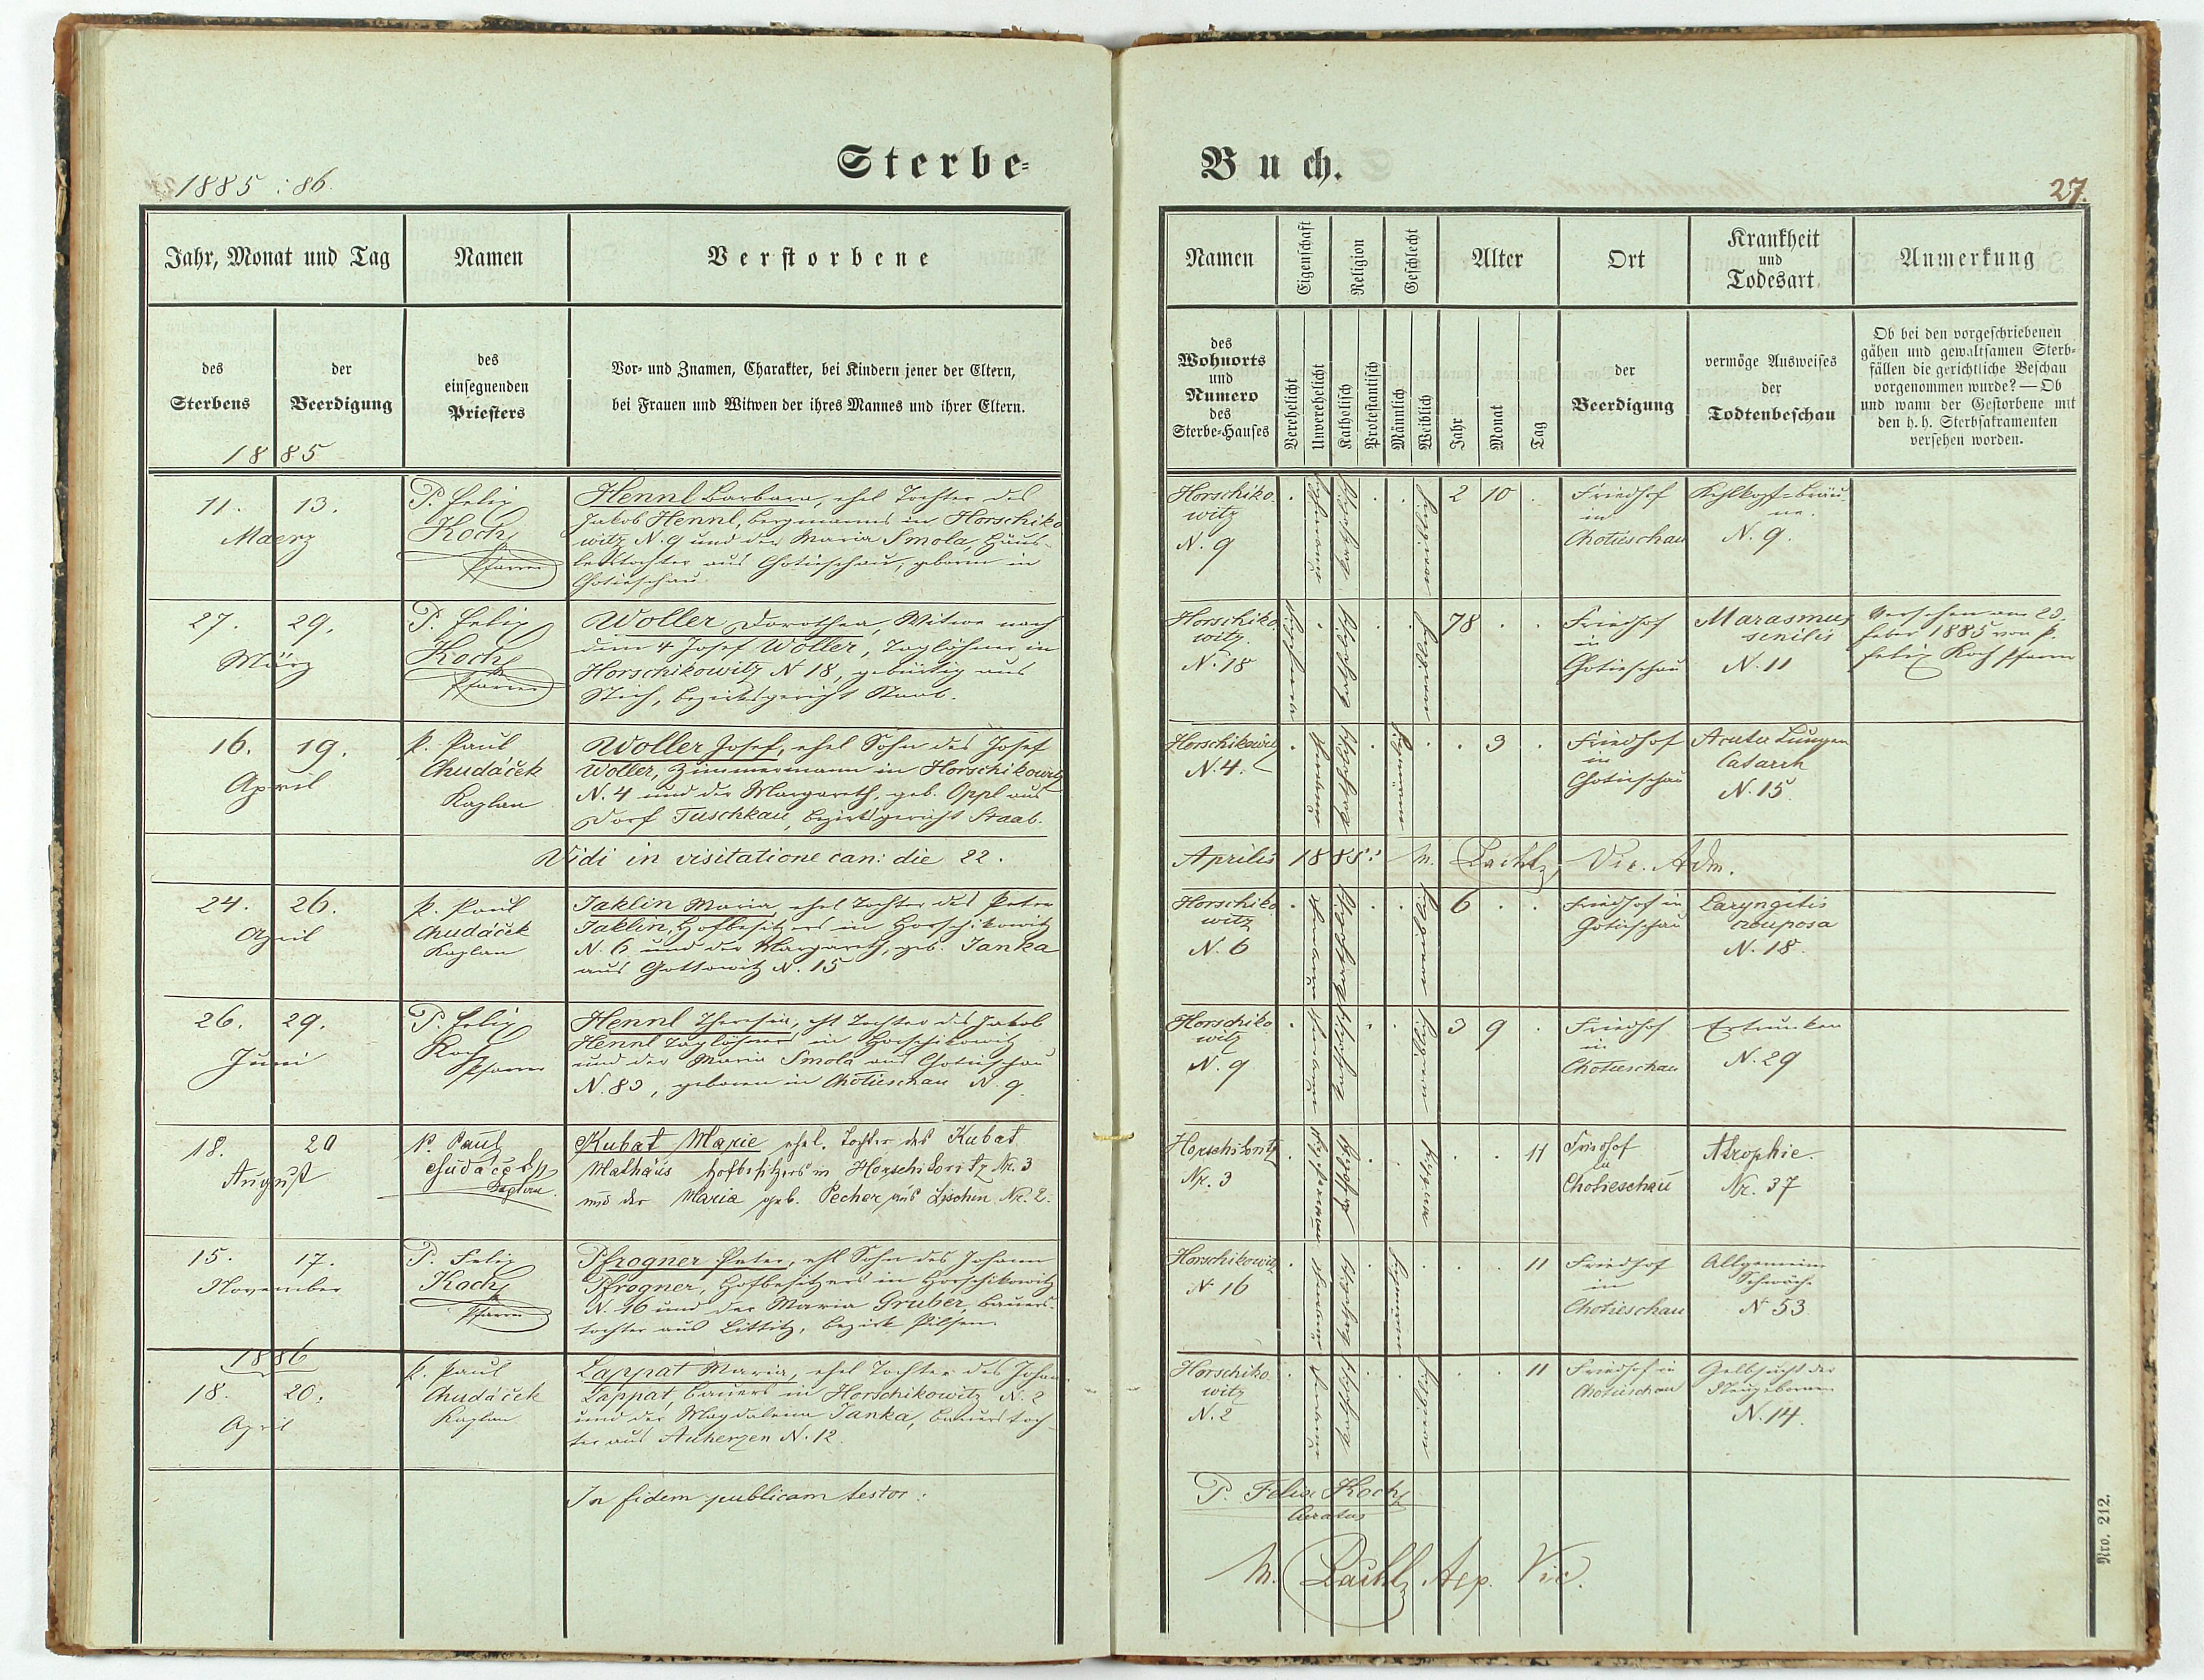 1885 : 86.
Sterbe-
Buch.
27.
Jahr, Monat und Tag
Namen
Verstorbene
Namen
Eigenschaft
Religion
Geschlecht
Alter
Ort
Krankheit
und
Todesart
Anmerkung
des
Sterbens
der
Beerdigung
1885
des
einsegnenden
Priesters
Vor- und Znamen, Charakter, bei Kindern jener der Eltern,
bei Frauen und Witwen der ihres Mannes und ihrer Eltern.
des
Wohnorts
und
Numero
des
Sterbe-Hauses
Verehelicht
Unverehelicht
Katholisch
Protestantisch
Männlich
Weiblich
Jahr
Monat
Tag
der
Beerdigung
vermöge Ausweises
der
Todtenbeschau
Ob bei den vorgeschriebenen
gähen und gewaltsamen Sterb-
fällen die gerichtliche Beschau
vorgenommen wurde? — Ob
und wann der Gestorbene mit
den h. h. Sterbsakramenten
versehen worden.
11. 13.
Maerz
P. Felix
Koch
Pfarrer
Hennl Barbara, ehel Tochter des
Jakob Hennl, Bergmanns in Horschiko
witz N. 9 und der Maria Smola, Häus-
lerstochter aus Chotieschau, geboren in
Chotieschau.
Horschiko
witz
N. 9
weiblich
2 10
Friedhof
in
Chotieschau
Kehlkopf=Bräu-
ne.
N. 9.
27. 29.
März
P. Felix
Koch
Pfarrer
Woller Dorothea, Witwe nach
dem † Josef Woller, Taglöhner in
Horschikowitz N 18, gebürtig aus
Stich, Bezirksgericht Staab.
Horschiko
witz.
N. 18
weiblich
78
Friedhof
in
Chotieschau
Marasmus
senilis
N. 11
Versehen am 23.
Feber 1885 von P.
Felix Koch Pfarrer
16. 19.
April
P. Paul
Chudáček
Kaplan
Woller Josef, ehel Sohn des Josef
Woller, Zimmermann in Horschikowitz
N. 4 und der Margareth, geb. Oppl aus
Dorf Tuschkau, Bezirksgericht Staab.
Horschikowitz
N. 4.
männlich
3
Friedhof
in
Chotieschau
Acuter Lungen
Catarrh
N. 15.
Vidi in visitatione can: die 22.
Aprilis 1885: Vic. Adm.
24. 26.
April
P. Paul
Chudáček
Kaplan
Jaklin Maria, ehel Tochter des Peter
Jaklin, Hofbesitzers in Horschikowitz
N. 6 und der Margareth, geb. Janka
aus Gottowitz N. 15
Horschiko
witz
N. 6
weiblich
6
Friedhof in
Chotieschau
Laryngitis
crouposa
N. 18.
26. 29.
Juni
P. Felix
Koch
Pfarrer
Hennl Theresia, ehl Tochter des Jakob
Hennl Taglöhners in Horschikowitz
und der Maria Smola aus Chotieschau
N. 83, geboren in Chotieschau N. 9.
Horschiko
witz
N. 9
weiblich
3 9
Friedhof
in
Chotieschau
Ertrunken
N. 29
18. 20
August
P. Paul
Chudáček
Kaplan.
Kubat Marie ehel. Tochter des Kubat
Mathäus Hofbesitzers in Horschikowitz Nr. 3
und der Maria geb. Pecher aus Nr. 2.
Horschikowitz
Nr. 3
weiblich
11
Friedhof
in
Chotieschau
Atrophie.
Nr. 37
15. 17.
November
P. Felix
Koch
Pfarrer
Pfrogner Peter, ehl Sohn des Johann
Pfrogner, Hofbesitzers in Horschikowitz
N. 16 und der Maria Gruber, Bauers-
tochter aus Littitz, Bezirk Pilsen
Horschikowitz
N 16
männlich
11
Friedhof
in
Chotieschau
Allgemeine
Schwäche
N 53
1886
18. 20.
April
P. Paul
Chudáček
Kaplan
Lappat Maria, ehel Tochter des Johan
Lappat, Bauers in Horschikowitz N. 2
und der Magdalena Janka, Bauerstoch-
ter aus Auherzen N. 12
Horschiko
witz
N. 2
weiblich
11
Friedhof in
Chotieschau
Gelbsucht der
Neugebornen
N. 14.
In fidem publicam testor:
P. Felix Koch
Curatus
Vic.
Nro. 212.